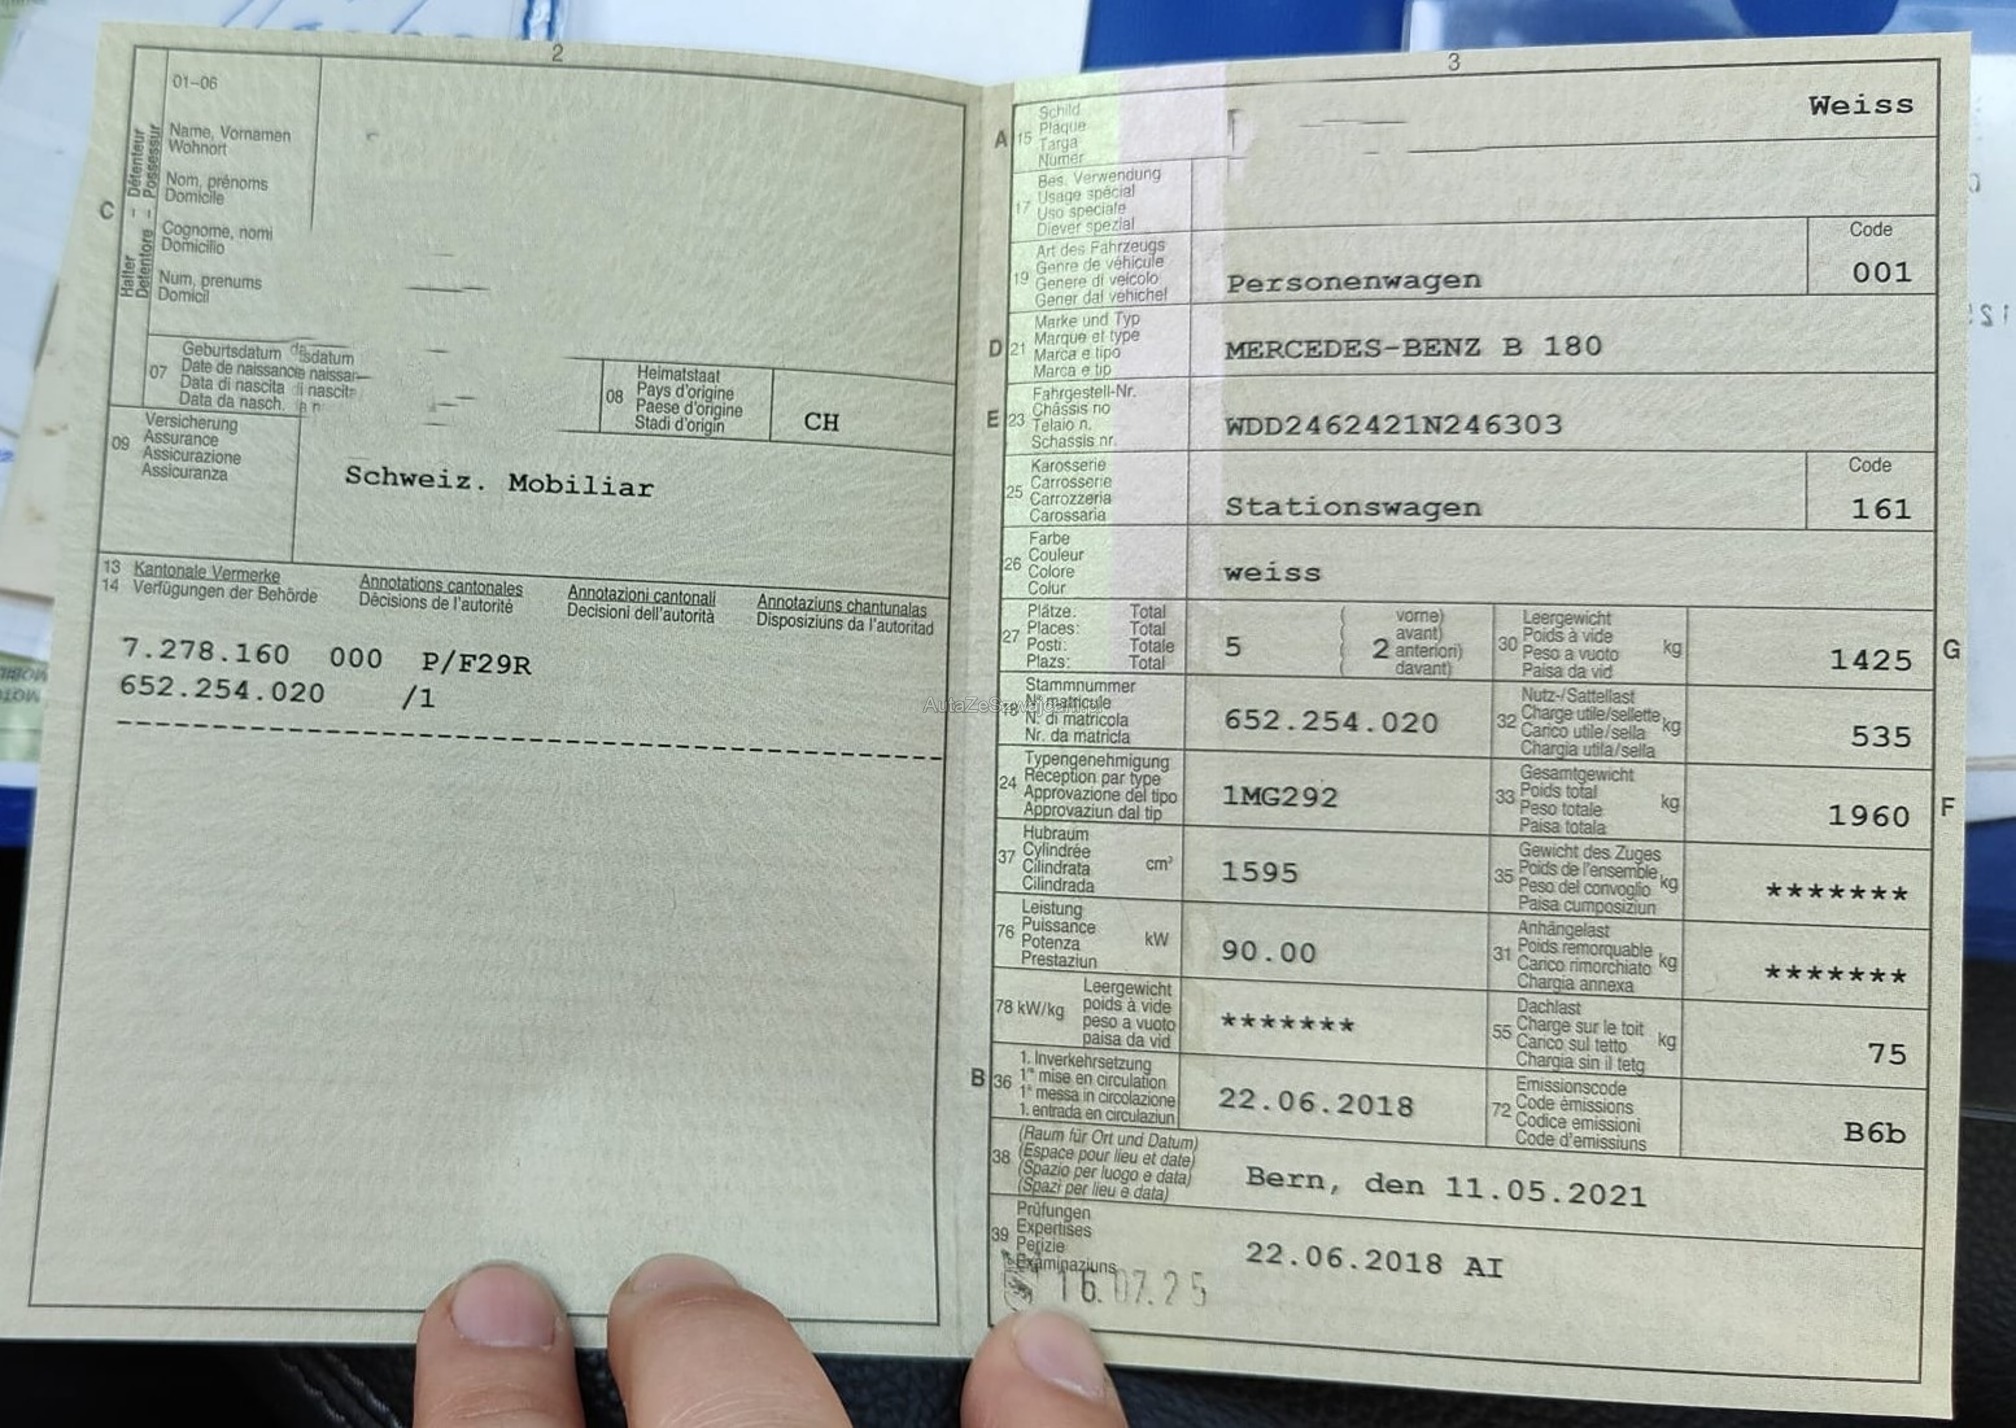 2
01-06
C
Halter - Détenteur
Detentore - Possessur
Name, Vornamen
Wohnort
Nom, prénoms
Domicile
Cognome, nomi
Domicilio
Num, prenums
Domicil
07
Geburtsdatum
Date de naissance
Data di nascita
Data da nasch.
08
Heimatstaat
Pays d'origine
Paese d'origine
Stadi d'origin
CH
09
Versicherung
Assurance
Assicurazione
Assicuranza
Schweiz. Mobiliar
13 Kantonale Vermerke Annotations cantonales Annotazioni cantonali Annotaziuns chantunalas
14 Verfügungen der Behörde Décisions de l'autorité Decisioni dell'autorità Disposiziuns da l'autoritad
7.278.160 000 P/F29R
652.254.020 /1
3
A 15
Schild
Plaque
Targa
Numer
Weiss
17
Bes. Verwendung
Usage spécial
Uso speciale
Diever spezial
19
Art des Fahrzeugs
Genre de véhicule
Genere di veicolo
Gener dal vehichel
Personenwagen
Code
001
D 21
Marke und Typ
Marque et type
Marca e tipo
Marca e tip
MERCEDES-BENZ B 180
E 23
Fahrgestell-Nr.
Châssis no
Telaio n.
Schassis nr.
WDD2462421N246303
25
Karosserie
Carrosserie
Carrozzeria
Carossaria
Stationswagen
Code
161
26
Farbe
Couleur
Colore
Colur
weiss
27
Plätze: Total
Places: Total
Posti: Totale
Plazs: Total
5
( vorne)
( avant)
2 anteriori)
( davant)
30
Leergewicht
Poids à vide
Peso a vuoto
Paisa da vid
kg
1425
G
18
Stammnummer
N° matricule
N. di matricola
Nr. da matricla
652.254.020
32
Nutz-/Sattellast
Charge utile/sellette
Carico utile/sella
Chargia utila/sella
kg
535
24
Typengenehmigung
Réception par type
Approvazione del tipo
Approvaziun dal tip
1MG292
33
Gesamtgewicht
Poids total
Peso totale
Paisa totala
kg
1960
F
37
Hubraum
Cylindrée
Cilindrata
Cilindrada
cm³
1595
35
Gewicht des Zuges
Poids de l'ensemble
Peso del convoglio
Paisa cumposiziun
kg
*******
76
Leistung
Puissance
Potenza
Prestaziun
kW
90.00
31
Anhängelast
Poids remorquable
Carico rimorchiato
Chargia annexa
kg
*******
78 kW/kg
Leergewicht
poids à vide
peso a vuoto
paisa da vid
*******
55
Dachlast
Charge sur le toit
Carico sul tetto
Chargia sin il tetg
kg
75
B 36
1. Inverkehrsetzung
1re mise en circulation
1a messa in circolazione
1. entrada en circulaziun
22.06.2018
72
Emissionscode
Code émissions
Codice emissioni
Code d'emissiuns
B6b
38
(Raum für Ort und Datum)
(Espace pour lieu et date)
(Spazio per luogo e data)
(Spazi per lieu e data)
Bern, den 11.05.2021
39
Prüfungen
Expertises
Perizie
Examinaziuns
22.06.2018 AI
16.07.25